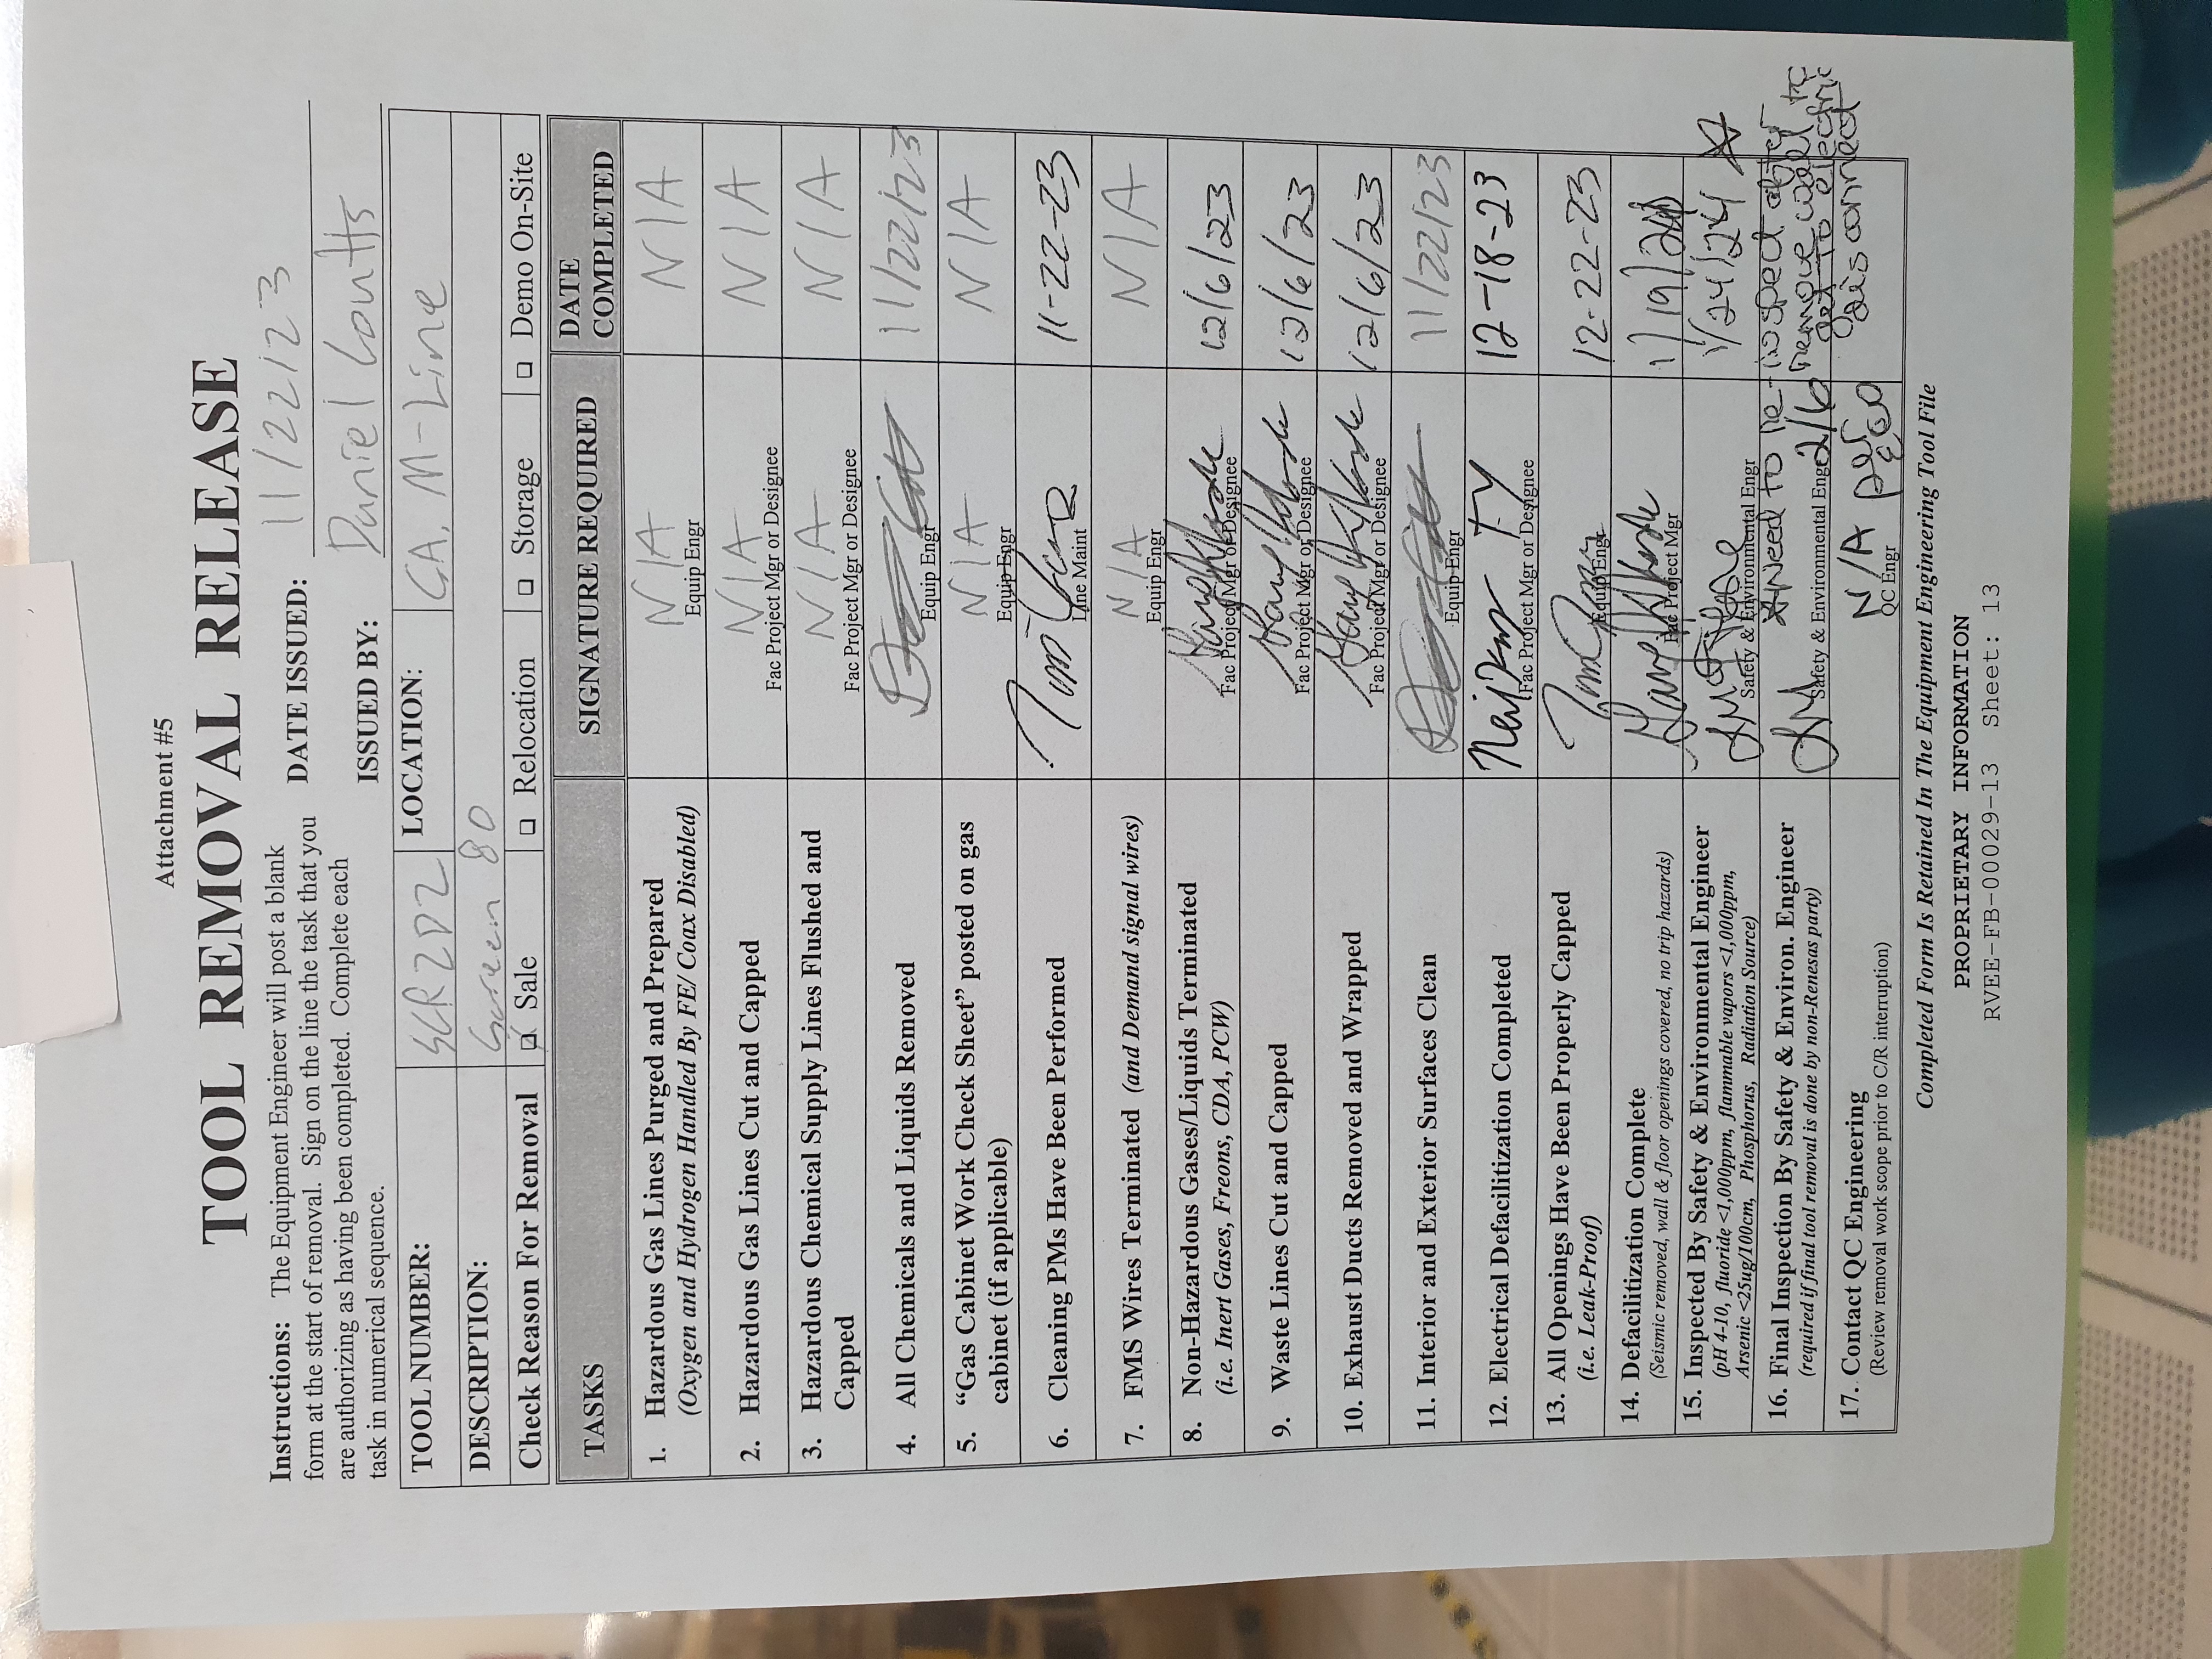 Attachment #5
TOOL REMOVAL RELEASE
Instructions: The Equipment Engineer will post a blank
form at the start of removal. Sign on the line the task that you
are authorizing as having been completed. Complete each
task in numerical sequence.
DATE ISSUED: 11/22/23
ISSUED BY: Daniel Coutts
TOOL NUMBER: SCR2D2 LOCATION: CA, M-Line
DESCRIPTION: Screen 80
Check Reason For Removal Sale Relocation Storage Demo On-Site
TASKS SIGNATURE REQUIRED DATE COMPLETED
1. Hazardous Gas Lines Purged and Prepared N/A N/A
(Oxygen and Hydrogen Handled By FE/ Coax Disabled) Equip Engr
2. Hazardous Gas Lines Cut and Capped N/A N/A
Fac Project Mgr or Designee
3. Hazardous Chemical Supply Lines Flushed and N/A N/A
Capped Fac Project Mgr or Designee
4. All Chemicals and Liquids Removed 11/22/23
Equip Engr
5. “Gas Cabinet Work Check Sheet” posted on gas N/A N/A
cabinet (if applicable) Equip Engr
6. Cleaning PMs Have Been Performed 11-22-23
Line Maint
7. FMS Wires Terminated (and Demand signal wires) N/A N/A
Equip Engr
8. Non-Hazardous Gases/Liquids Terminated 12/6/23
(i.e. Inert Gases, Freons, CDA, PCW) Fac Project Mgr or Designee
9. Waste Lines Cut and Capped 12/6/23
Fac Project Mgr or Designee
10. Exhaust Ducts Removed and Wrapped 12/6/23
Fac Project Mgr or Designee
11. Interior and Exterior Surfaces Clean 11/22/23
Equip Engr
12. Electrical Defacilitization Completed 12-18-23
Fac Project Mgr or Designee
13. All Openings Have Been Properly Capped 12-22-23
(i.e. Leak-Proof) Equip Engr
14. Defacilitization Complete 1/19/24
(Seismic removed, wall & floor openings covered, no trip hazards) Fac Project Mgr
15. Inspected By Safety & Environmental Engineer 1/24/24
(pH 4-10, fluoride <1,000ppm, flammable vapors <1,000ppm,
Arsenic <25ug/100cm, Phosphorus, Radiation Source) Safety & Environmental Engr
need to re-inspect after
remove wall to
get to electric
disconnect
16. Final Inspection By Safety & Environ. Engineer 2/6
(required if final tool removal is done by non-Renesas party) Safety & Environmental Engr
17. Contact QC Engineering N/A per
(Review removal work scope prior to C/R interruption) QC Engr
Completed Form Is Retained In The Equipment Engineering Tool File
PROPRIETARY INFORMATION
RVEE-FB-00029-13 Sheet: 13